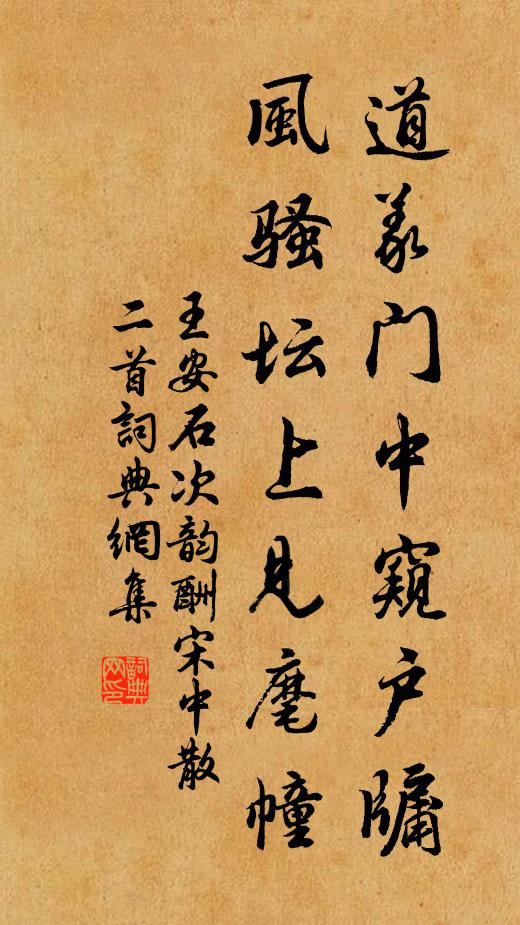 道義门中窺户牖
風骚坛上見麾幢
王安石次韵酬宋中散
二首詞典網集
詞典网印